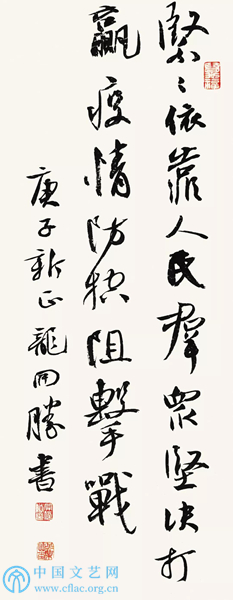 緊々依靠人民群眾堅決打
贏疫情防控阻擊戰
庚子新正龍開勝書
中国文艺网
www.cflac.org.cn